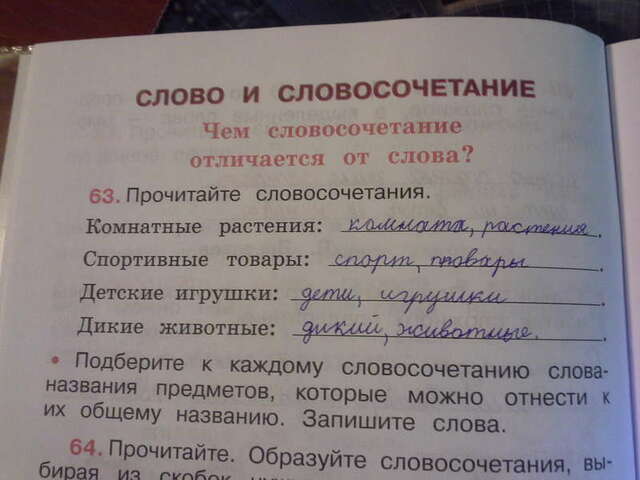 СЛОВО И СЛОВОСОЧЕТАНИЕ
Чем словосочетание
отличается от слова?
63. Прочитайте словосочетания.
Комнатные растения: комната, растения.
Спортивные товары: спорт, товары.
Детские игрушки: дети, игрушки.
Дикие животные: дикий, животные.
• Подберите к каждому словосочетанию слова-
названия предметов, которые можно отнести к
их общему названию. Запишите слова.
64. Прочитайте. Образуйте словосочетания, вы-
бирая из скобок